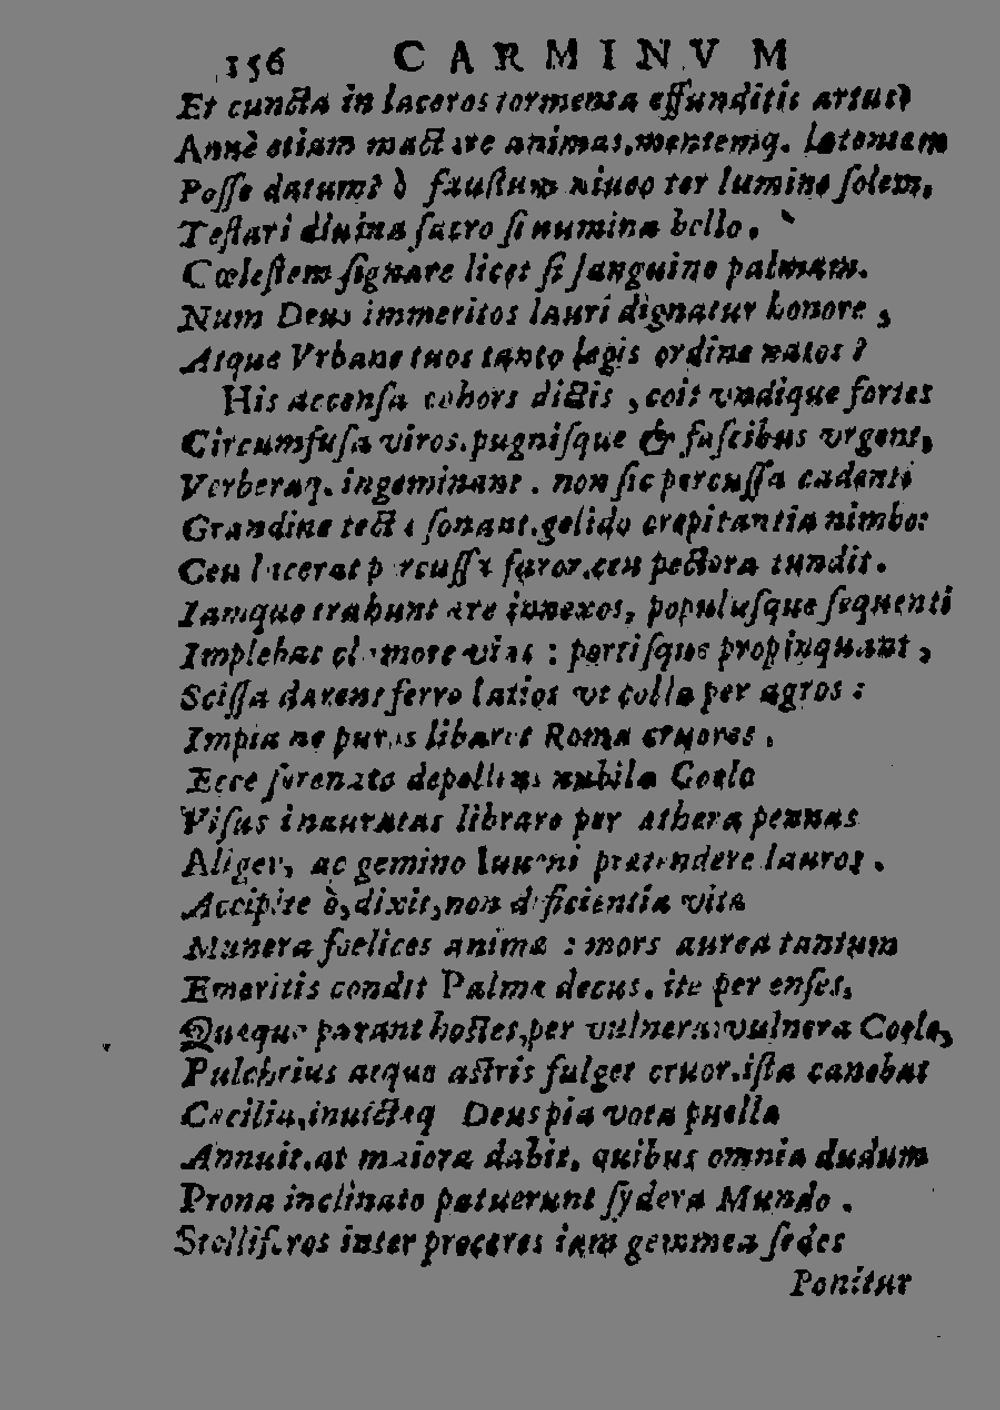 156 CARMINVM
Et cuncta in laceros tormenta effunditis artus?
Annè etiam mactare animas, mentemq. latentem
Posse datum? ò faustum niueo ter lumine solem,
Testari diuina sacro si numina bello.
Cœlestem signare licet si sanguine palmam.
Num Deus immeritos lauri dignatur honore,
Atque Vrbane tuos tanto legis ordine natos?
His accensa cohors dictis, coit vndique fortes
Circumfusa viros. pugnisque & fuscibus vrgent,
Verberaq. ingeminant. non sic percussa cadenti
Grandine tecta sonant. gelido crepitantia nimbo:
Ceu lacerat percussa furor. ceu pectora tundit.
Iamque trahunt ære innexos, populusque sequenti
Implebat clamore vias: portisque propinquant,
Scissa darent ferro latios vt colla per agros:
Impia ne puros libaret Roma cruores.
Ecce serenato depellens nubila Coelo
Visus inauratas librare per æthera pennas
Aliger, ac gemino Iuueni prætendere lauros.
Accipite ò, dixit, non deficientia vitæ
Munera foelices animæ: mors aurea tantum
Emeritis condit Palmæ decus. ite per enses,
Quæque parant hostes, per vulnera: vulnera Coelo,
Pulchrius atque astris fulget cruor. ista canebat
Cæcilia, inuictæq Deus pia vota puellæ
Annuit. at maiora dabit, quibus omnia dudum
Prona inclinato patuerunt sydera Mundo.
Stelliferos inter proceres iam gemmea sedes
Ponitur